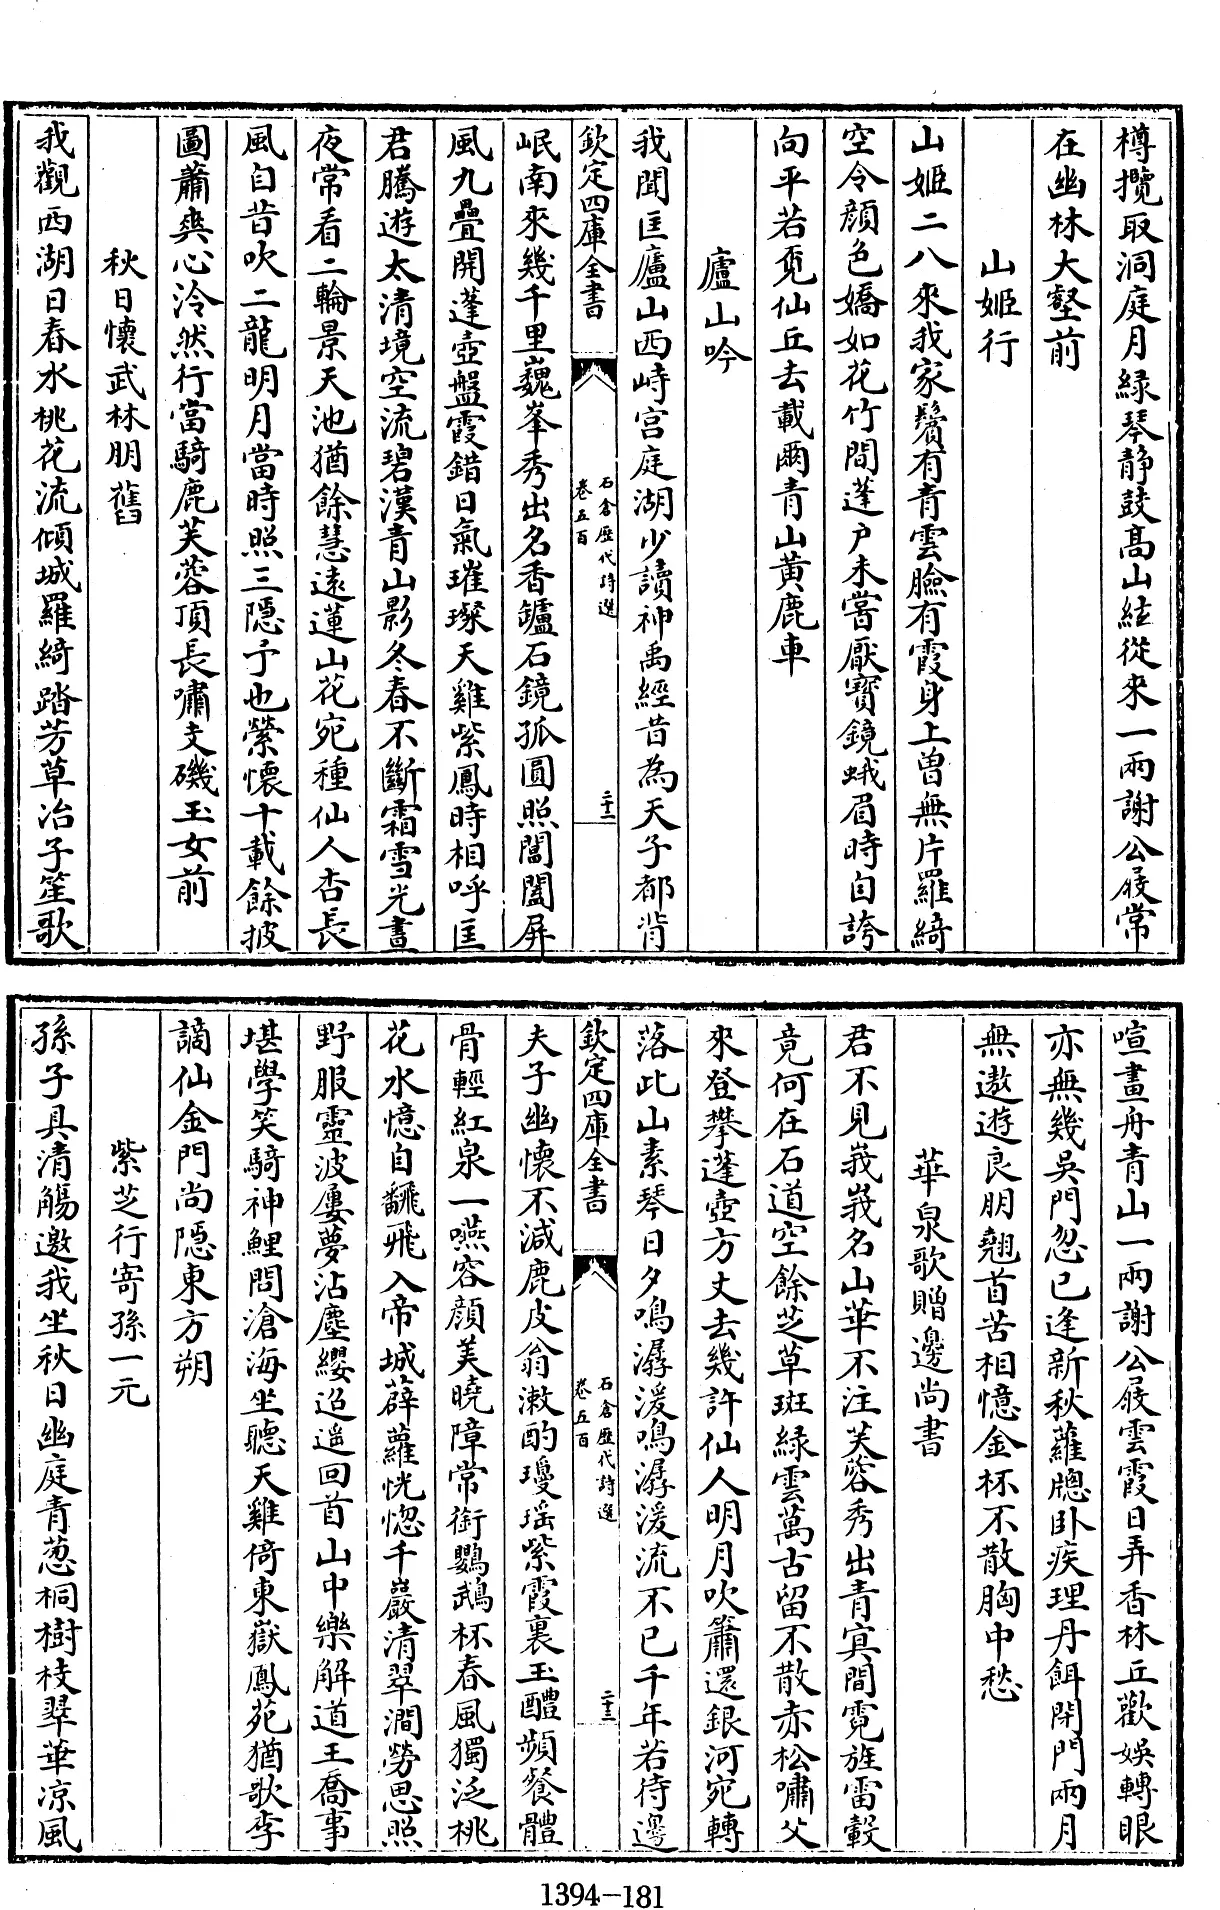 樽攬取洞庭月綠琴静鼓髙山絃從來一兩謝公屐常
在幽林大壑前
山姬行
山姬二八來我家鬢有青雲臉有霞身上曽無片羅綺
空令顔色嬌如花竹間蓬户未嘗厭寳鏡蛾眉時自誇
向平若覓仙丘去載爾青山黄鹿車
廬山吟
我聞匡廬山西峙宫庭湖少讀神禹經昔為天子都背
欽定四庫全書
石倉歴代詩選
卷五百
二十二
岷南來幾千里巍峯秀出名香鑪石鏡孤圓照閶闔屏
風九疊開蓬壺盤霞錯日氣璀璨天雞紫鳳時相呼匡
君騰遊太清境空流碧漢青山影冬春不斷霜雪光晝
夜常看二輪景天池猶餘慧遠蓮山花宛種仙人杏長
風自昔吹二龍明月當時照三隠予也縈懷十載餘披
圖蕭爽心泠然行當騎鹿芙蓉頂長嘯支磯玉女前
秋日懷武林朋舊
我觀西湖日春水桃花流傾城羅綺踏芳草冶子笙歌
喧畫舟青山一兩謝公屐雲霞日弄香林丘歡娱轉眼
亦無幾吳門忽已逢新秋蘿牕卧疾理丹餌閉門兩月
無遨遊良朋翹首苦相憶金杯不散胸中愁
華泉歌贈邊尚書
君不見峩峩名山華不注芙蓉秀出青寅間霓旌雷轂
竟何在石道空餘芝草斑緑雲萬古留不散赤松嘯父
來登攀蓬壺方丈去幾許仙人明月吹簫還銀河宛轉
落此山素琴日夕鳴潺湲鳴潺湲流不已千年若待邊
欽定四庫全書
石倉歴代詩選
卷五百
二十三
夫子幽懷不減鹿皮翁漱酌瓊瑶紫霞裏玉醴頻餐體
骨輕紅泉一嚥容顔美曉障常銜鸚鵡杯春風獨泛桃
花水憶自翻飛入帝城薜蘿恍惚千巖清翠澗勞思照
野服靈波屢夢沾塵纓迢遥回首山中樂解道王喬事
堪學笑騎神鯉問滄海坐聽天雞倚東嶽鳳苑猶歌李
謫仙金門尚隠東方朔
紫芝行寄孫一元
孫子具清觴邀我坐秋日幽庭青葱桐樹枝翠華凉風
1394-181